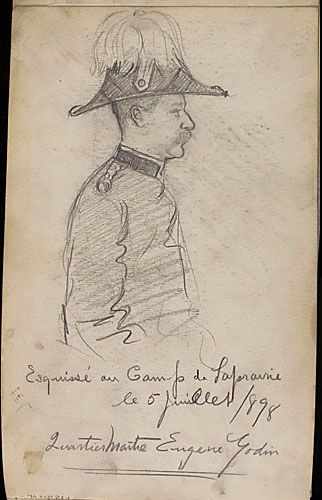 Esquissé au Camp de Laprairie
le 5 juillet /898
Quartier Maitre Eugene Godin